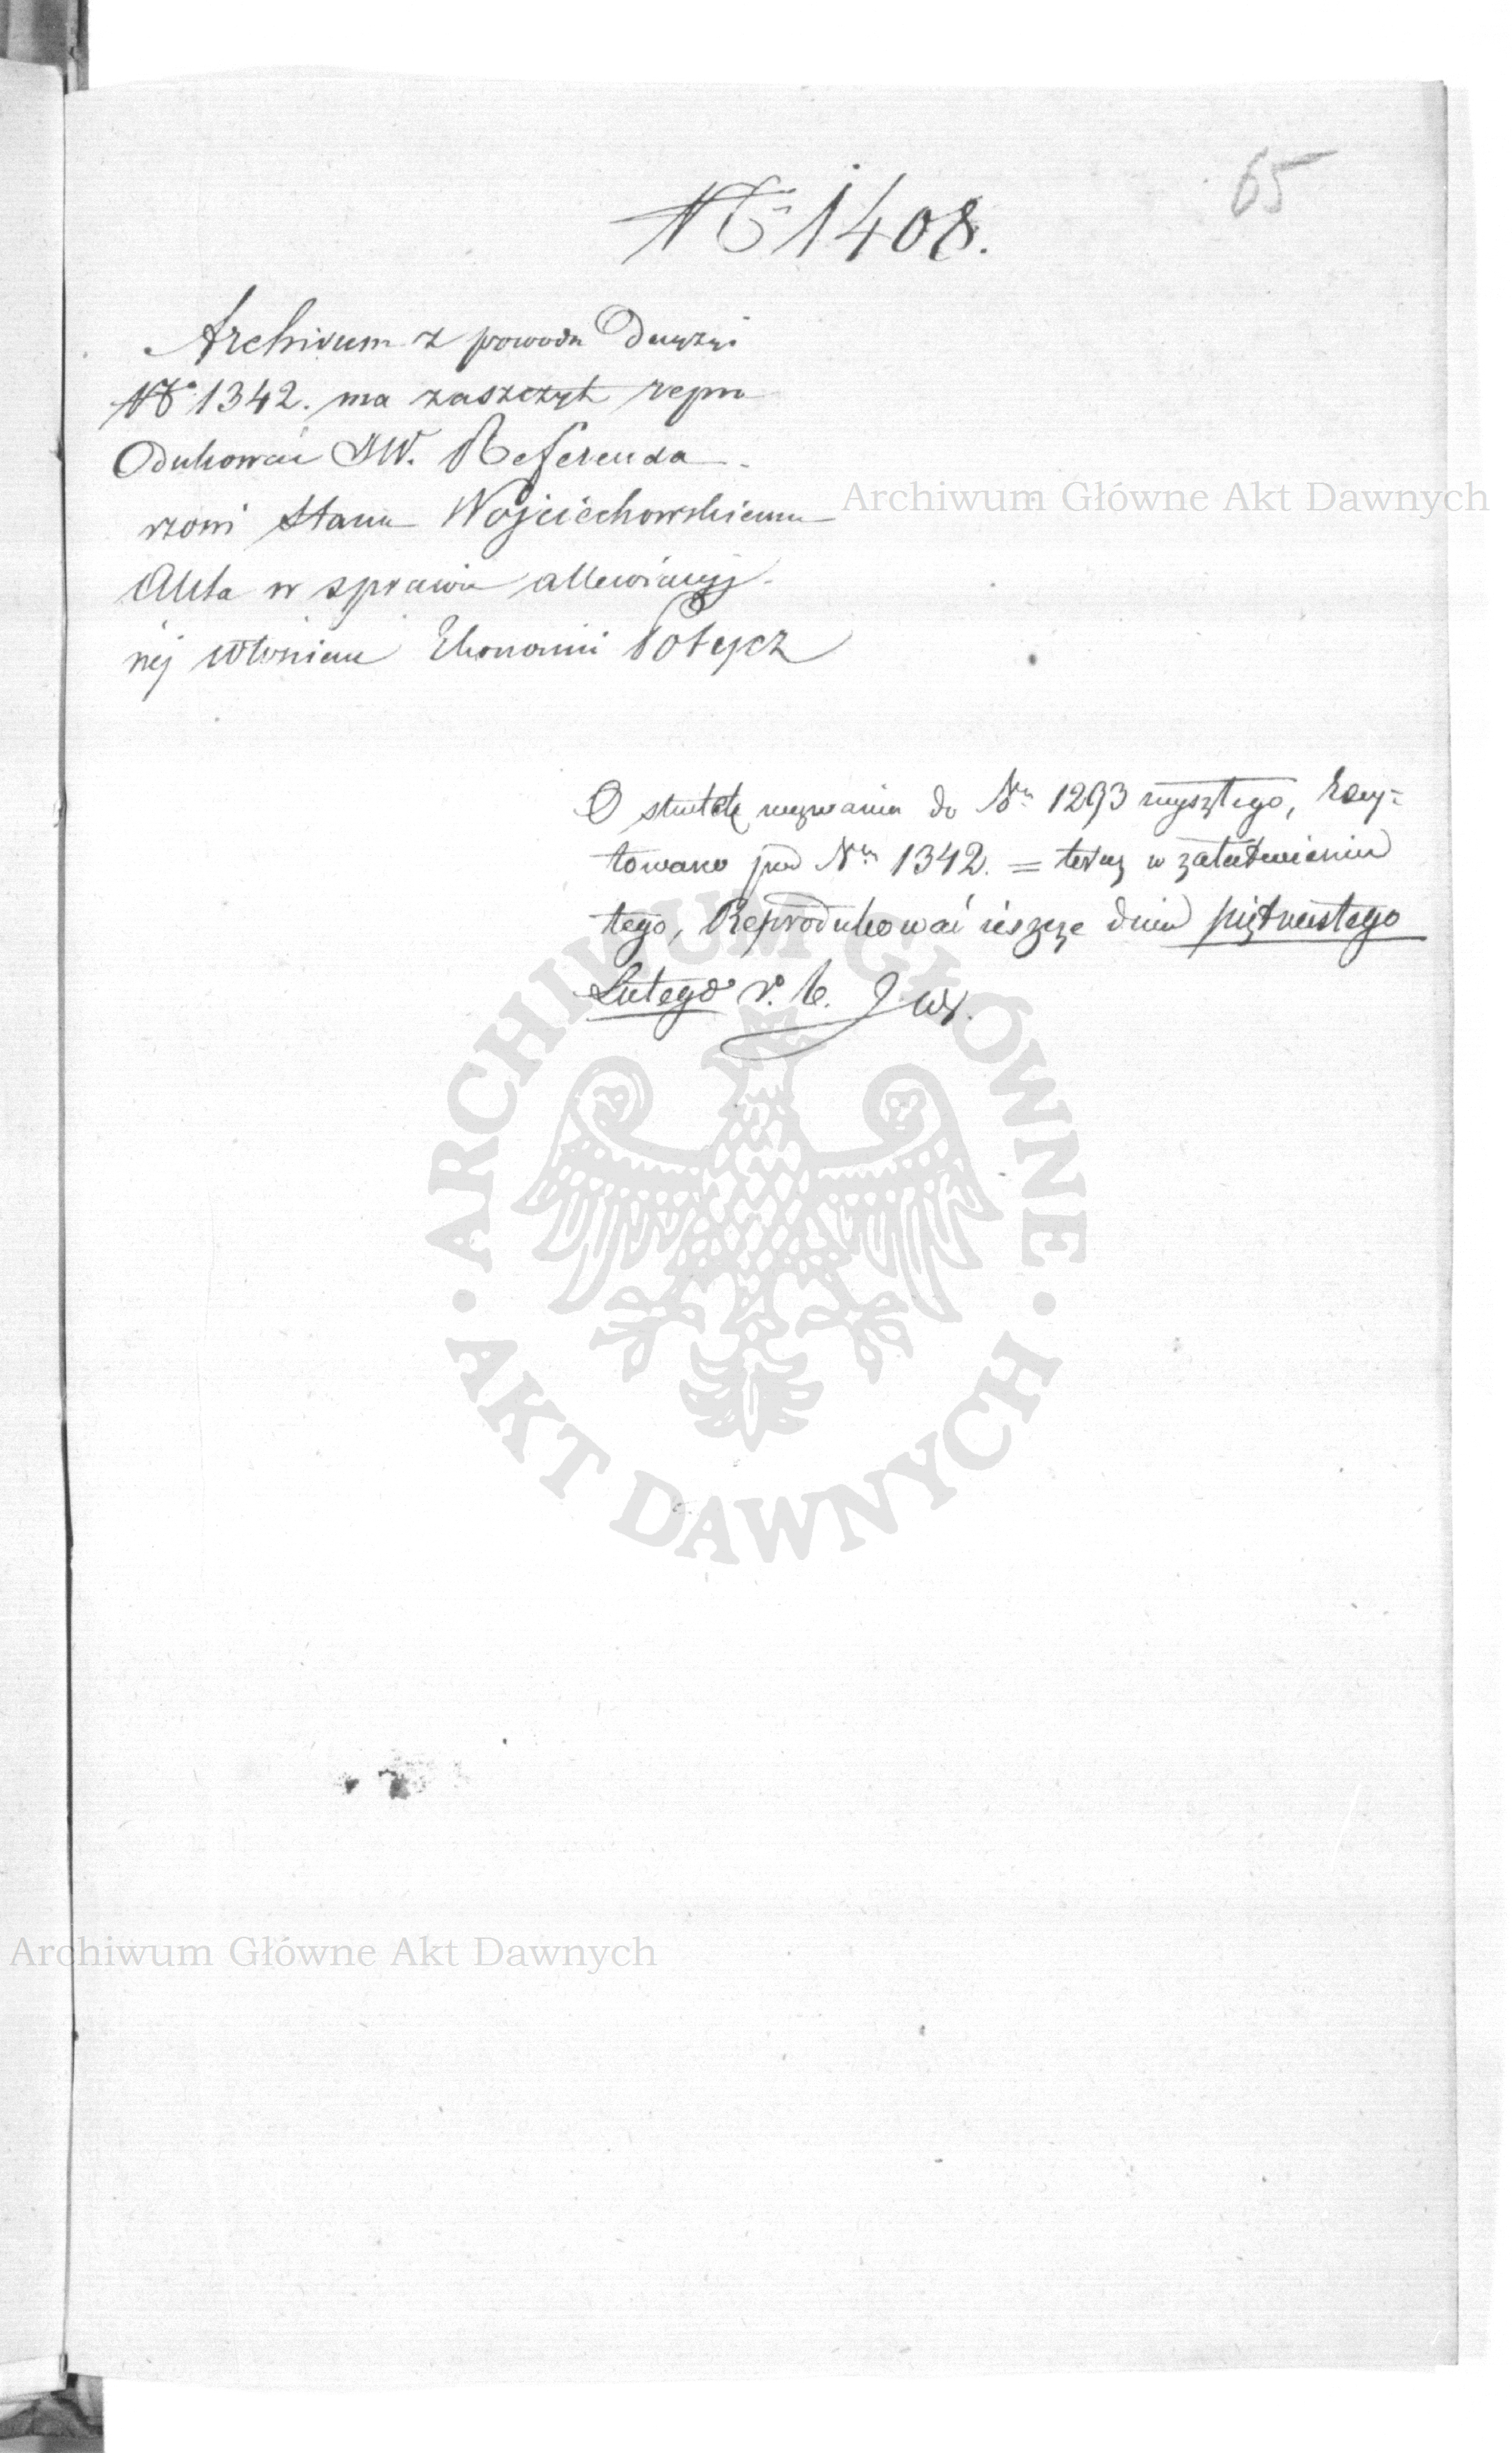 65
No 1408.
Archivum z powodu Decyzyi
No 1342. ma zaszczyt repro
dukować JW. Referenda
rzowi Stanu Wojciechowskiemu
Akta w sprawie allewiacyj
nej Włościan Ekonomii Potycz
Archiwum Główne Akt Dawnych
O skutek wezwania do Nru 1293 wyszłego, Excy=
towano pod Nrm 1342. = teraz w załatwieniu
tego, Reprodukować ieszcze dnia piętnastego
Lutego r. b. JW.
ARCHIWUM GŁÓWNE
AKT DAWNYCH
Archiwum Główne Akt Dawnych